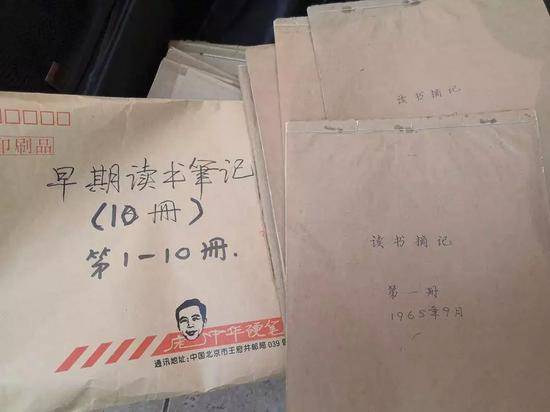 印刷品
早期读书筆记
(10册)
第1-10册.
中华硬笔
通讯地址:中国北京市王府井邮局 039
读书摘记
读书摘记
第一册
1965年9月